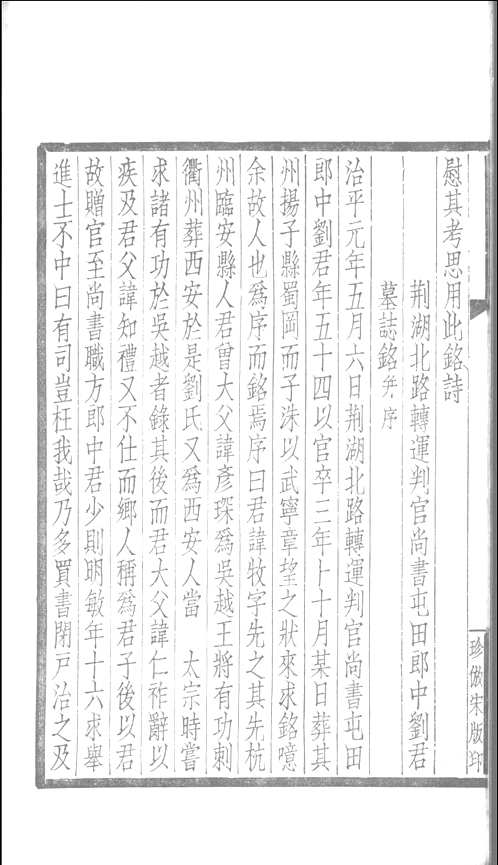 慰其考思用此銘詩
荆湖北路轉運判官尚書屯田郎中劉君
墓誌銘并序
治平元年五月六日荆湖北路轉運判官尚書屯田
郎中劉君年五十四以官卒三年卜十月某日葬其
州揚子縣蜀岡而子洙以武寧章望之狀來求銘噫
余故人也爲序而銘焉序曰君諱牧字先之其先杭
州臨安縣人君曾大父諱彥琛爲吳越王將有功刺
衢州葬西安於是劉氏又爲西安人當 太宗時嘗
求諸有功於吳越者錄其後而君大父諱仁祚辭以
疾及君父諱知禮又不仕而鄉人稱爲君子後以君
故贈官至尚書職方郎中君少則明敏年十六求舉
進士不中曰有司豈枉我哉乃多買書閉戶治之及
珍倣宋版印